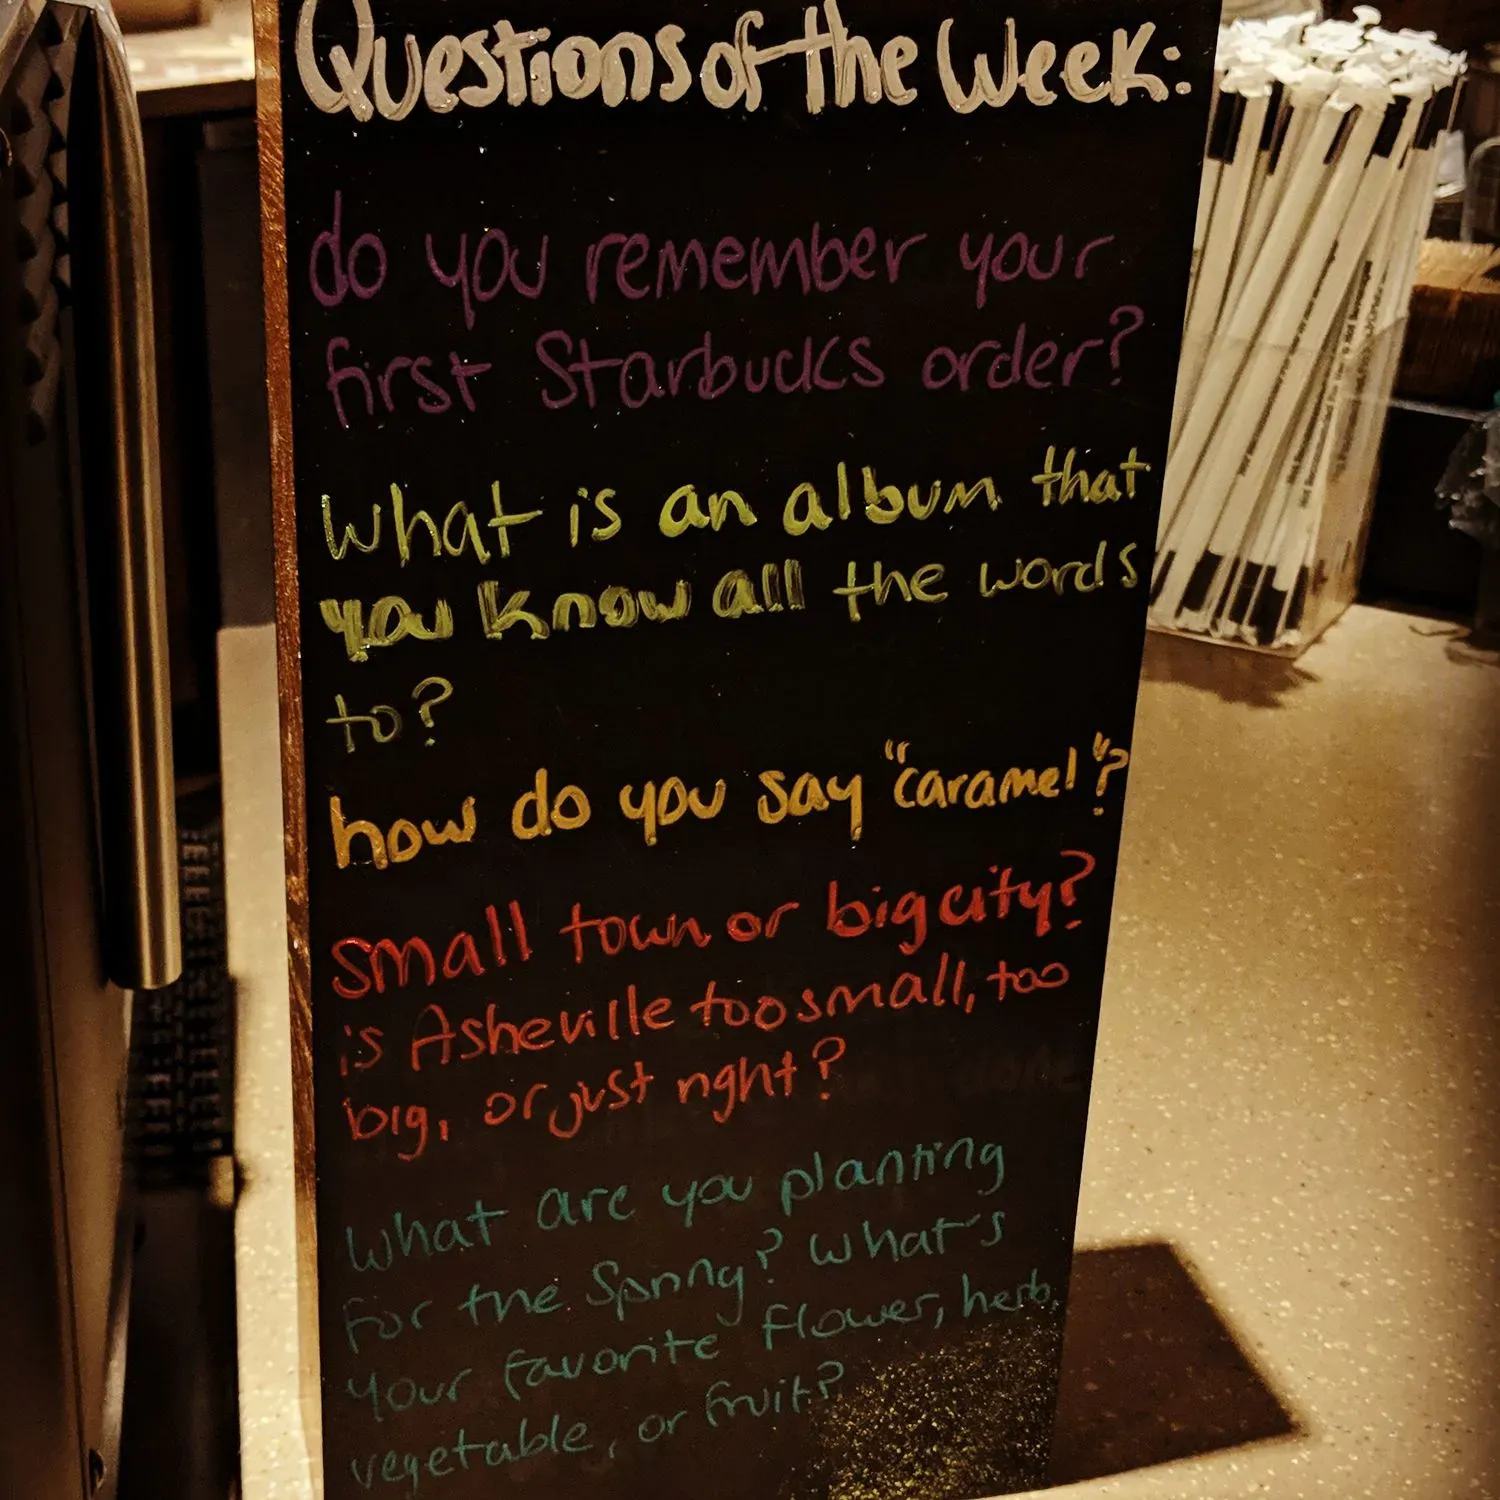 Questions of the Week:
do you remember your
first Starbucks order?
What is an album that
you know all the words
to?
how do you say "caramel"?
Small town or big city?
is Asheville too small, too
big, or just right?
What are you planting
for the Spring? What's
your favorite flower, herb,
vegetable, or fruit?